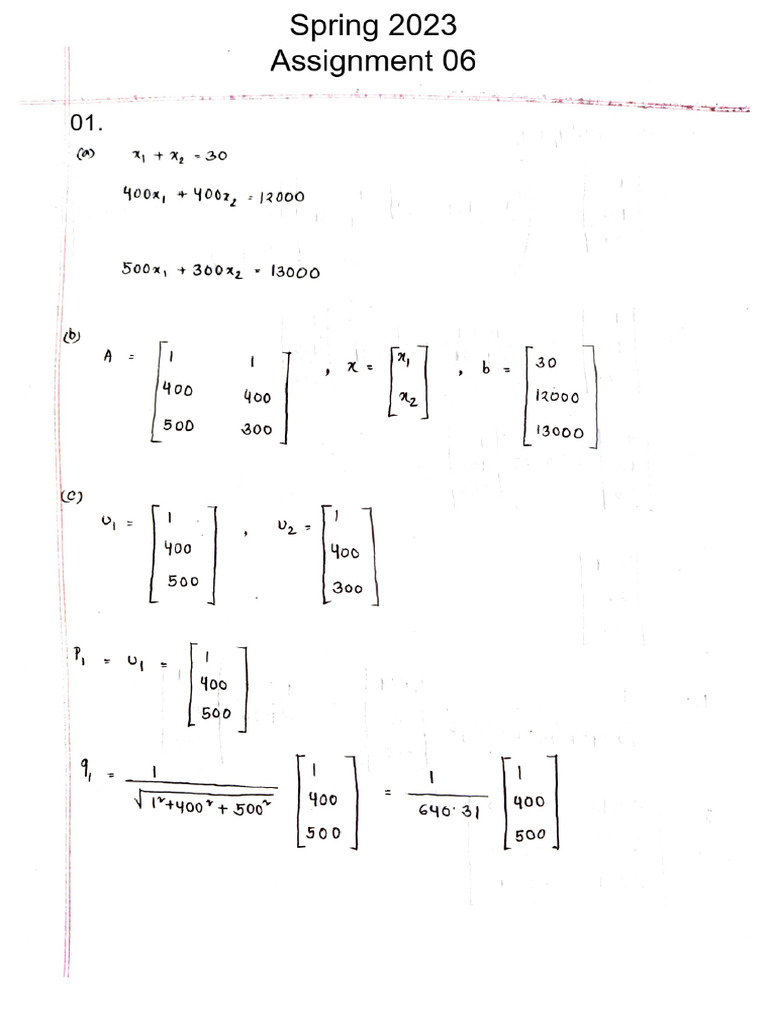 Spring 2023
Assignment 06
01.
(a) x₁ + x₂ = 30
400x₁ + 400x₂ = 12000
500x₁ + 300x₂ = 13000
(b) A = [1 1; 400 400; 500 300] , x = [x₁; x₂] , b = [30; 12000; 13000]
(c) u₁ = [1; 400; 500] , u₂ = [1; 400; 300]
P₁ = u₁ = [1; 400; 500]
q₁ = 1/√(1²+400²+500²) [1; 400; 500] = 1/640.31 [1; 400; 500]